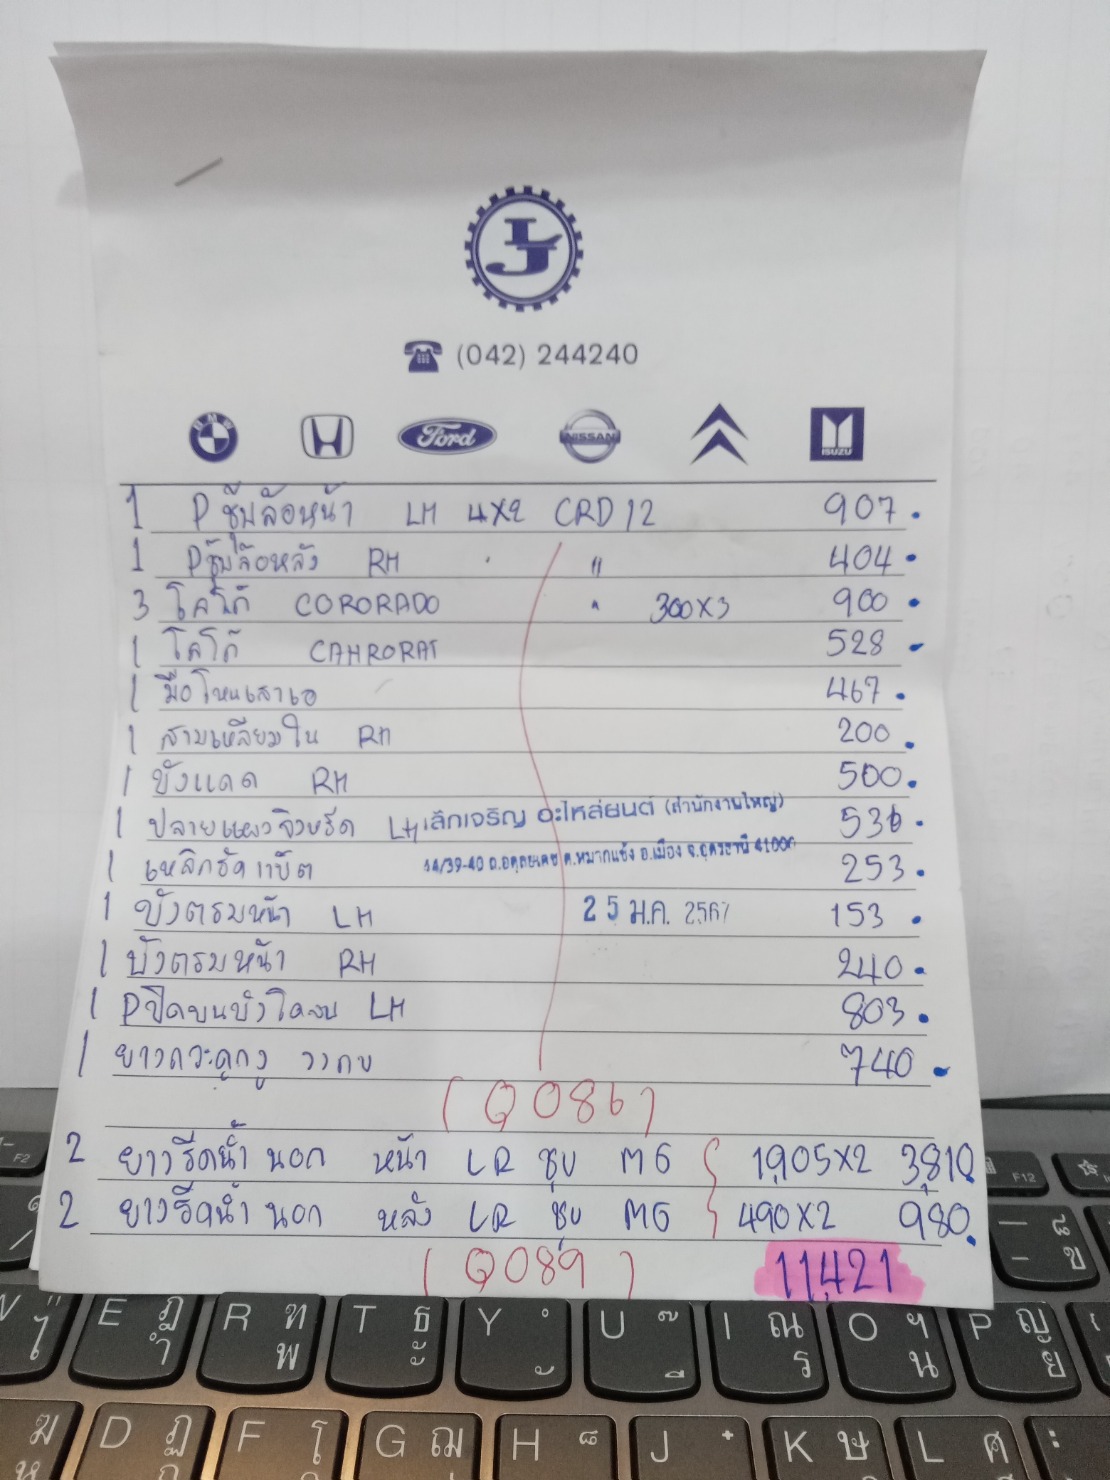 LJ
(042) 244240
BMW Ford NISSAN ISUZU
1 P ซุ้มล้อหน้า LH 4X2 CRD12 907
1 Pซุ้มล้อหลัง RH " 404
3 โลโก้ CORORADO " 300X3 900
1 โลโก้ 528
1 มือโหนเสาเอ 467
1 สามเหลี่ยมใน RH 200
1 บังแดด RH 500
1 LH 536
เล็กเจริญ อะไหล่ยนต์ (สำนักงานใหญ่)
44/39-40 ถ.อดุลยเดช ต.หมากแข้ง อ.เมือง จ.อุดรธานี 41000
1 เหล็กรัดแบ็ต 253
1 บังตรมหน้า LH 153
25 ม.ค. 2567
1 บังตรมหน้า RH 240
1 Pปิดบนบังโคลน LH 803
1 ยางกระดูกงู วงกบ 740
(Q086)
2 ยางรีดน้ำนอก หน้า LR ชุบ MG 1,905X2 3,810
2 ยางรีดน้ำนอก หลัง LR ชุบ MG 490X2 980
(Q089) 11,421
F2 F12
E ฎ ำ R ฑ พ T ธ ะ Y ํ ั U ๊ ี I ณ ร O ฯ น P ญ ย
ฆ ห D ฏ ก F โ G ฌ H ็ J ๋ K ษ L ศ